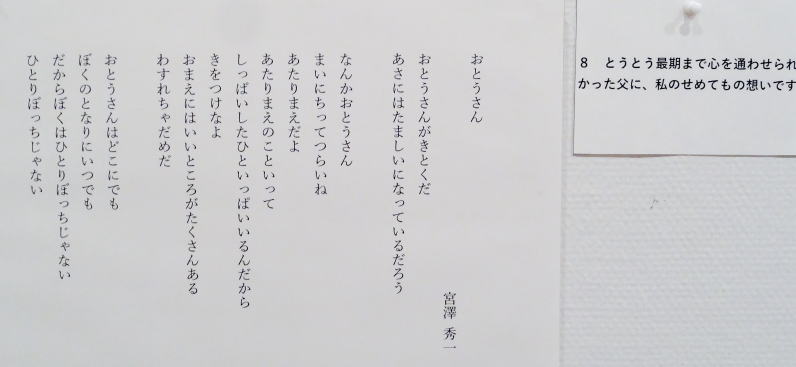 おとうさん
宮澤 秀一
おとうさんがきとくだ
あさにはたましいになっているだろう
なんかおとうさん
まいにちってつらいね
あたりまえだよ
あたりまえのこといって
しっぱいしたひといっぱいいるんだから
きをつけなよ
おまえにはいいところがたくさんある
わすれちゃだめだ
おとうさんはどこにでも
ぼくのとなりにいつでも
だからぼくはひとりぼっちじゃない
ひとりぼっちじゃない
8 とうとう最期まで心を通わせられ
かった父に、私のせめてもの想いです